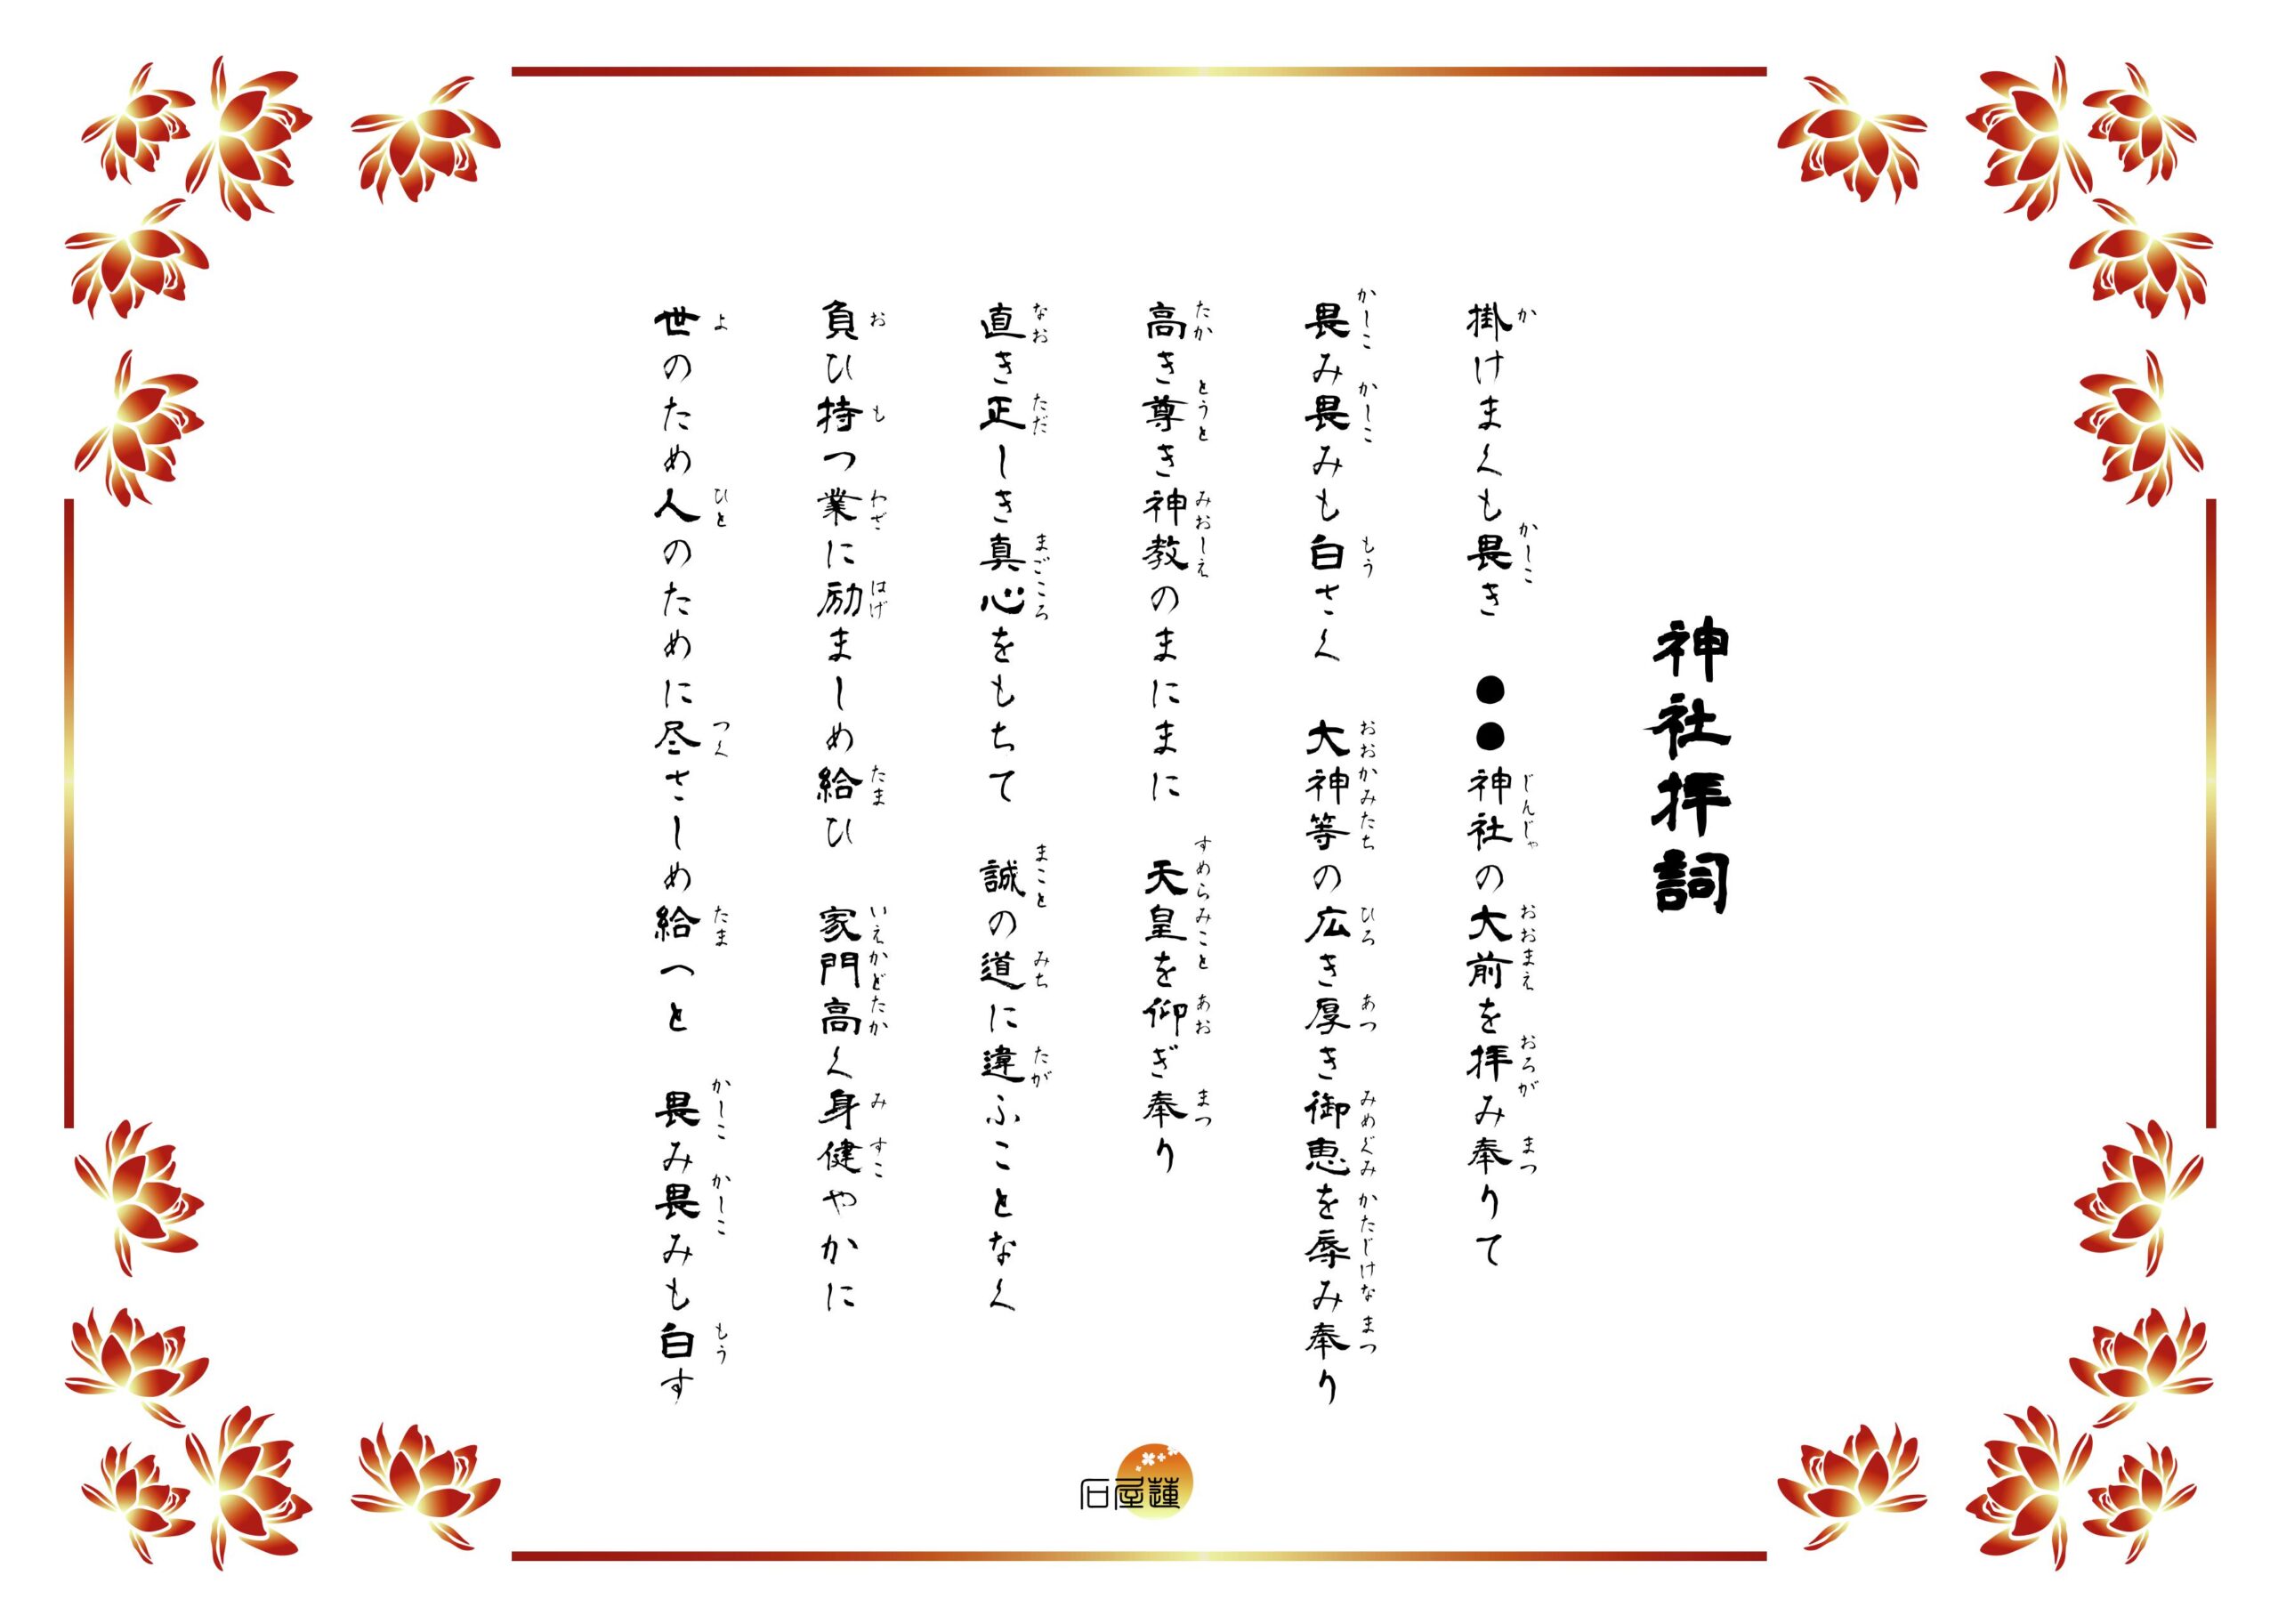 神社拝詞
掛けまくも畏き　●●神社の大前を拝み奉りて
畏み畏みも白さく　大神等の広き厚き御恵を辱み奉り
高き尊き神教のまにまに　天皇を仰ぎ奉り
直き正しき真心をもちて　誠の道に違ふことなく
負ひ持つ業に励ましめ給ひ　家門高く身健やかに
世のため人のために尽さしめ給へと　畏み畏みも白す
石屋蓮